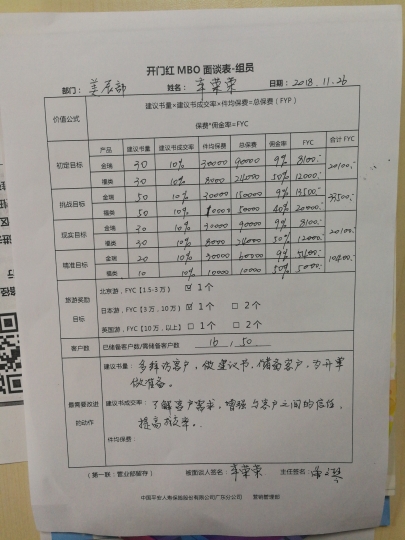 开门红 MBO 面谈表-组员
部门： 美辰部 姓名： 辛荣荣 日期： 2018.11.26
价值公式 建议书量*建议书成交率*件均保费=总保费（FYP）
保费*佣金率=FYC
产品 建议书量 建议书成交率 件均保费 总保费 佣金率 FYC 合计 FYC
初定目标 金瑞 30 10% 30000 90000 9% 8100 20100
福类 30 10% 8000 24000 50% 12000
挑战目标 金瑞 50 10% 30000 150000 9% 13500 33500
福类 50 10% 10000 50000 40% 20000
现实目标 金瑞 30 10% 30000 90000 9% 8100 20100
福类 30 10% 8000 24000 50% 12000
精准目标 金瑞 20 10% 30000 60000 9% 5400 10400
福类 10 10% 10000 10000 50% 5000
旅游奖励目标 北京游，FYC【1.5-3 万】 ☑ 1个
日本游，FYC【3 万，10 万） ☑ 1个 □ 2个
英国游，FYC【10 万，以上） □ 1个 □ 2个
客户数 已储备客户数/需储备客户数 16 , 50
最需要改进的动作 建议书量： 多拜访客户，做建议书，储备客户，为开单
做准备。
建议书成交率： 了解客户需求，增强与客户之间的信任，
提高效率。
件均保费：
（第一联：营业部留存） 被面谈人签名： 辛荣荣 主任签名：
中国平安人寿保险股份有限公司广东分公司 营销管理部